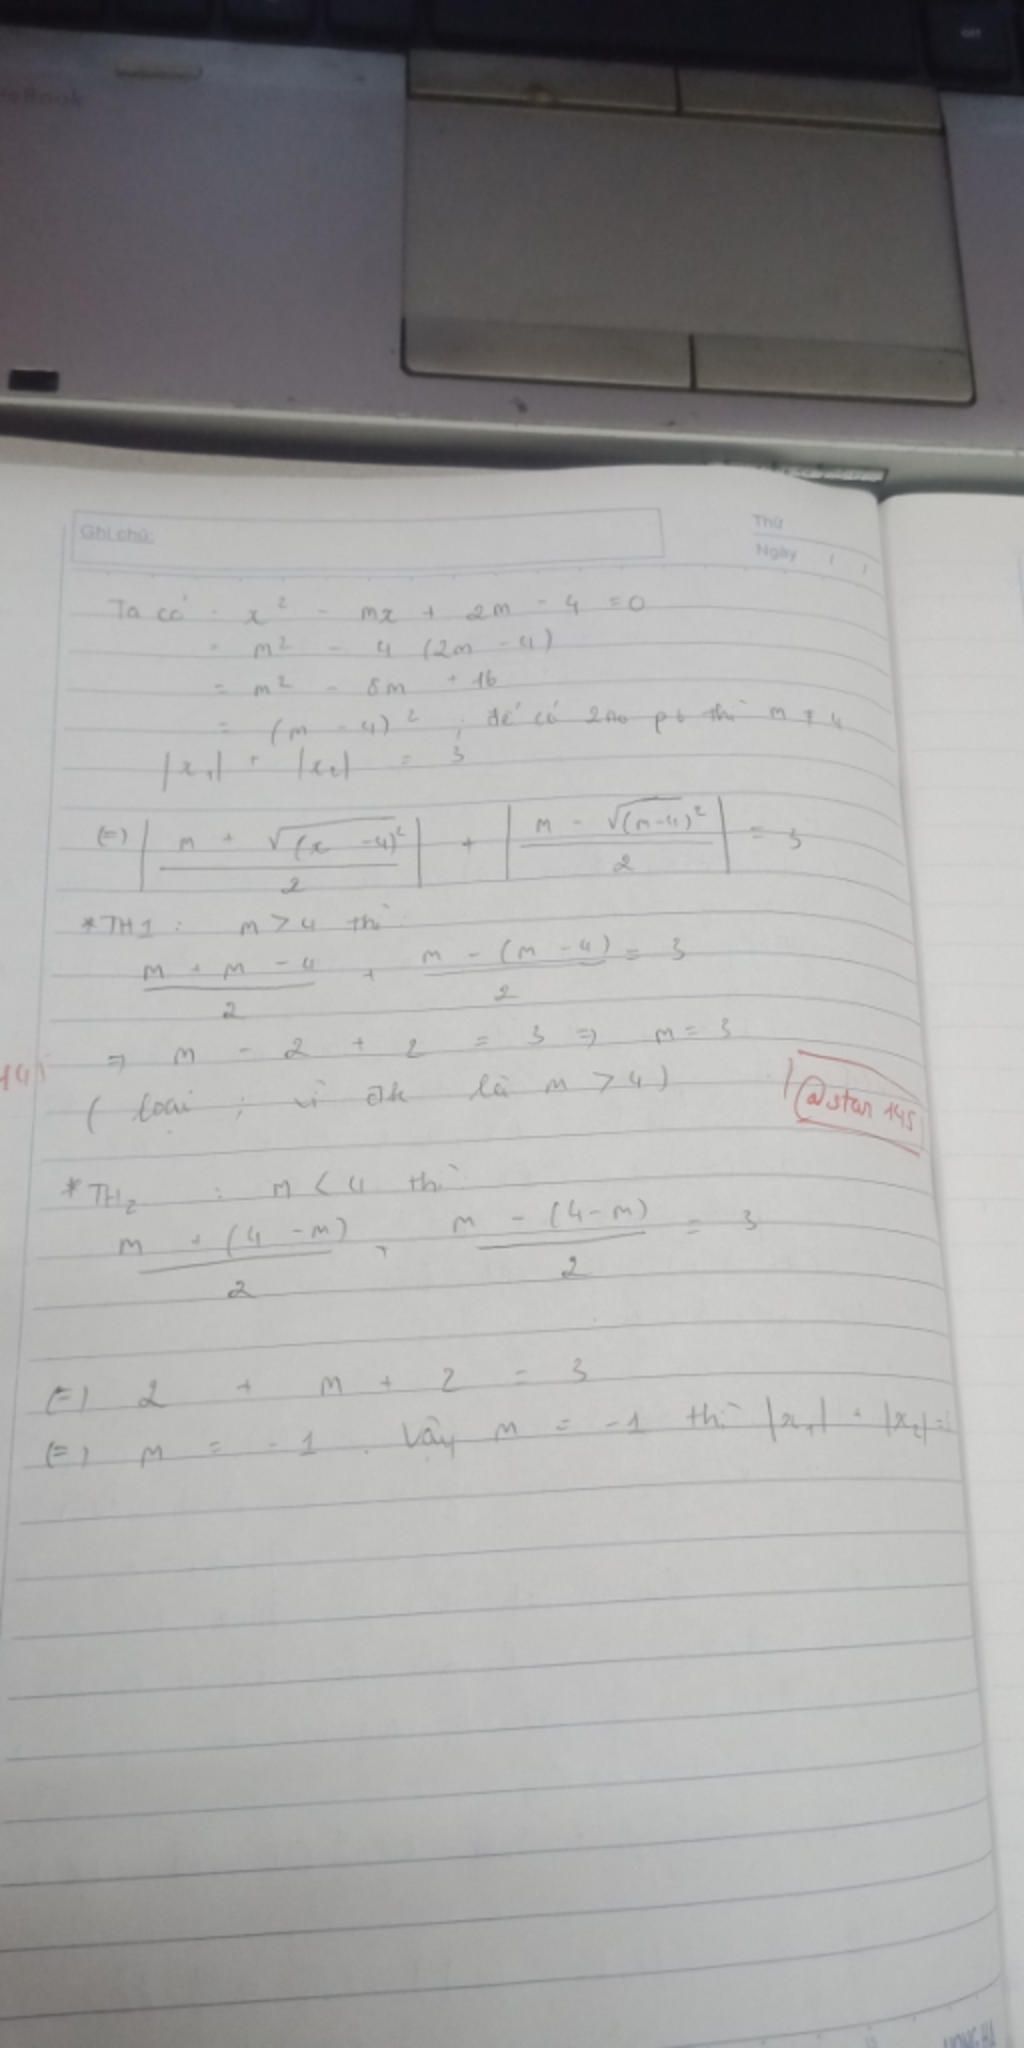 Off
eBook
Ghi chú:
Thứ
Ngày / /
Ta có : x² - mx + 2m - 4 = 0
= m² - 4 (2m - 4)
= m² - 8m + 16
= (m - 4)² ; để có 2no pb thì m ≠ 4
|x₁| + |x₂| = 3
(=) |(m + √(x - 4)²)/2| + |(m - √(m-4)²)/2| = 3
* TH1 : m > 4 thì
(m + m - 4)/2 + (m - (m - 4))/2 = 3
=> m - 2 + 2 = 3 => m = 3
(loại ; vì đk là m > 4)
@star 145
* TH2 : m < 4 thì
(m + (4 - m))/2 + (m - (4-m))/2 = 3
(=) 2 + m + 2 = 3
(=) m = -1 . Vậy m = -1 thì |x₁| + |x₂| =